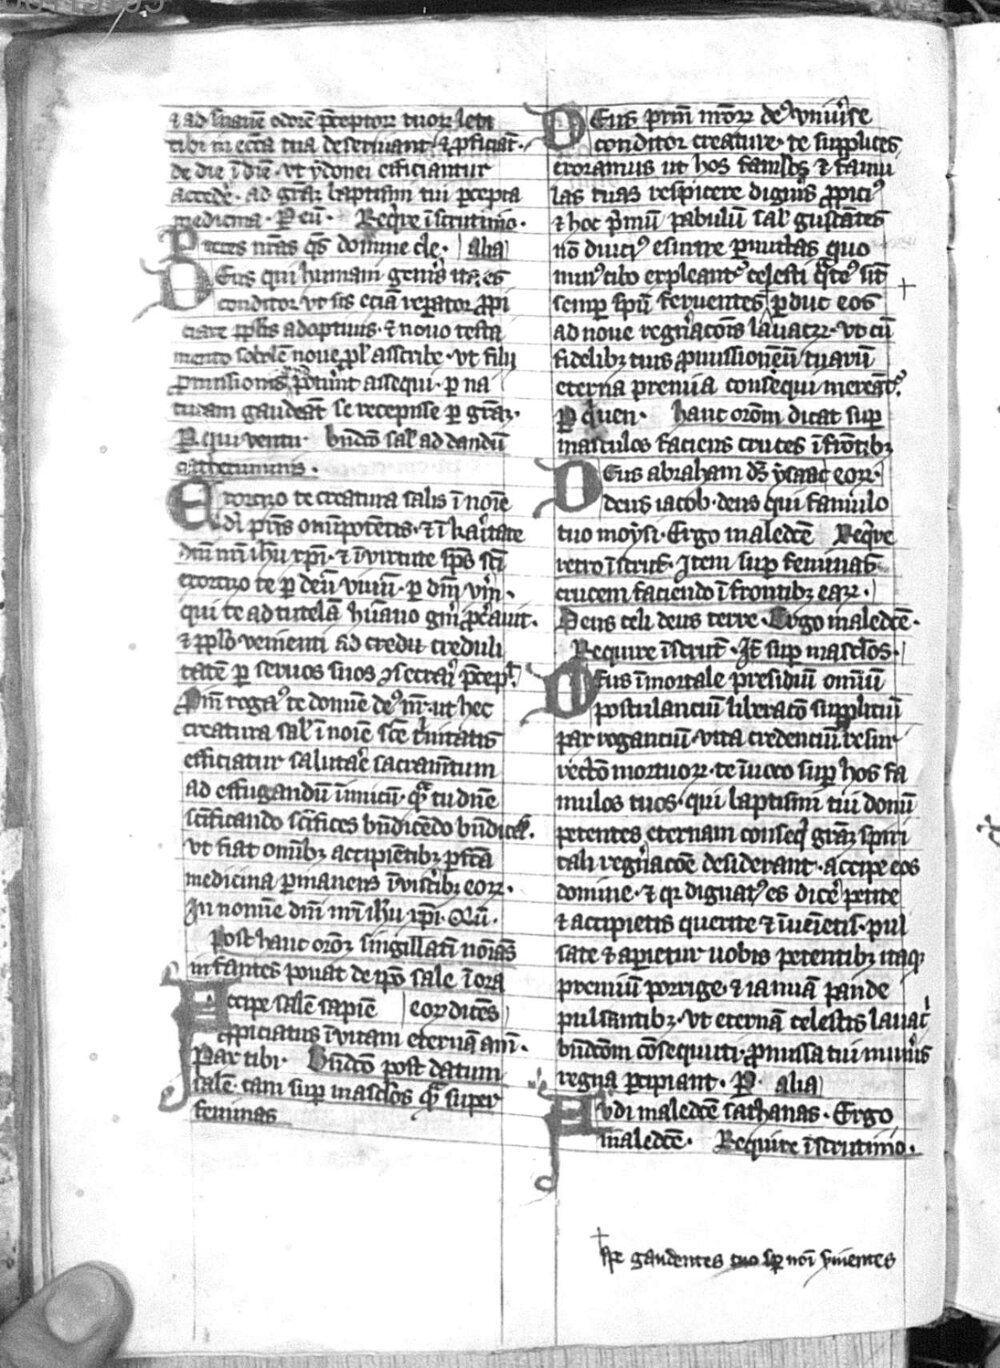 ⁊ ad suauē odorē p̄ceptoꝝ tuoꝝ leti
tibi in ecc̄a tua deseruiant ⁊ ꝓficiāt ·
de die ī diē · vt ydonei efficiantur
accedē · ad grāꝫ baptismi tui p̄cepta
medicina · P eū · Reqͥre ī scrutinio ·
Preces nr̄as qs̄ domine cle · alia
Deus qui humani geneīs ita es
conditor vt sis eciā repator ꝓpi
ciare pplis adoptiuis · ⁊ nouo testa
mento sobolē noue ꝓl' ascribe · vt filii
ꝓmissionis assequi · p na
turam gaudeāt se recepisse p grāꝫ ·
P qui ventu · bn̄dc̄o sal' ad dandū
cathecuminis ·
Exorcizo te creatura salis ī noīe
dī pr̄is om̄ipotētis · ⁊ ī kaͬitate
dn̄i nr̄i ihū xp̄i · ⁊ ī virtute sp̄s sc̄i
exorcizo te p deū viuū · p dn̄i vm̄ ·
qui te ad tutelā hūano gn̄i ꝓcͬauit ·
⁊ pplō venienti ad credū creduli
tatē p seruos suos ꝯsecrai p̄cep
Proīn rogaꝰ te domīe deꝰ nr̄ · ut hec
creatura sal' ī noīe sc̄e tͥnitatis
efficiatur salutaͤ sacramētum
ad effugandū īimicū · qͣ tu dn̄e
sc̄ificando sc̄ifices bn̄dicēdo bn̄dices ·
vt fiat om̄ibꝫ accipiētibꝫ pfc̄a
medicina p̄manens ī viscibꝫ eoꝝ ·
In nomīe dn̄i nr̄i ihū xp̄i · Qui ·
Post hanc orōꝫ singillatī noīas
infantes ponat de ip̄o sale ī ora
Accipe salē sapiē eor dices
ꝓpiciatus ī vitam eternā am̄ ·
Pax tibi · Bn̄dc̄o post datum
salē tam sup mascl̄os qͣ super
feminas
Deus prm̄ nr̄oꝝ deꝰ vniuīse
conditor creature · te supplices
exoramus ut hos famlos ⁊ famu
las tuas respicere digneīs ꝓpiciꝰ
⁊ hoc p̄mū pabulū sal' gustātes
nō diuciꝰ esurire p̄mittas quo
minꝰ cibo expleantꝰ celesti qͣteꝰ sit
semp sp̄ū feruentes pduc eos
ad noue regn̄acōis lauacꝝ · vt cū
fidelibꝫ tuis ꝓmissionū tuarū
eterna premia consequi mereātꝰ
P quen · hanc orōm dicat sup
masculos faciens cruces ī frōtibꝫ
Deus abraham ds̄ ysaac eor
deus iacob · deus qui famulo
tuo moysi · Ergo maledc̄e Reqͥre
retro ī scrut · Item sup feminas
crucem faciendo ī frontibꝫ eaꝝ ·
Deus celi deus terre · Ergo maledc̄e ·
Require ī scrut · It̄ sup mascl̄os ·
Deus īmortale presidiū om̄iū
postulanciū liberacō supplicū
pax roganciū · vita credenciū resur
rectō mortuoꝝ · te īuoco sup hos fa
mulos tuos · qui baptismi tui donū
petentes eternam conseqͥ grāꝫ spiri
tali regn̄acōe desiderant · accipe eos
domine · ⁊ qͬ dignatꝰ es dicē petite
⁊ accipietis querite ⁊ īueīetis · pul
sate ⁊ apietur uobis petentibꝫ itaqꝫ
premiū porrige · ⁊ ianuā pande
pulsantibꝫ · vt eternā celestis lauacͥ
bn̄dc̄om cōsequuti · ꝓmissa tui muneīs
regna pcipiant · P · alia
Audi maledc̄e sathanas · Ergo
maledc̄e · Require ī scrutinio ·
gaudentes tuo sp nōi